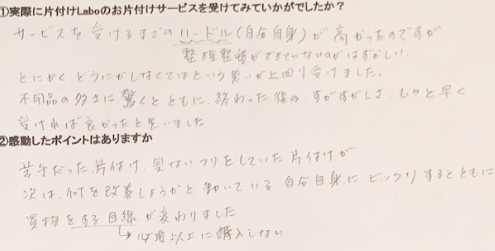 ①実際に片付けLaboのお片付けサービスを受けてみていかがでしたか?
サービスを受けるまでのハードル(自分自身)が高かったのですが
整理整頓ができてないのがはずかしい
とにかくどうにかしなくてはという思いが上回り受けました。
不用品の多さに驚くとともに、終わった後のすがすがしさ、もっと早く
受ければ良かったと思いました
②感動したポイントはありますか
苦手だった片付け、見ないフリをしていた片付けが
次は、何を改善しようかと動いている自分自身にビックリするとともに
買物をする目線が変わりました
→必要以上に購入しない